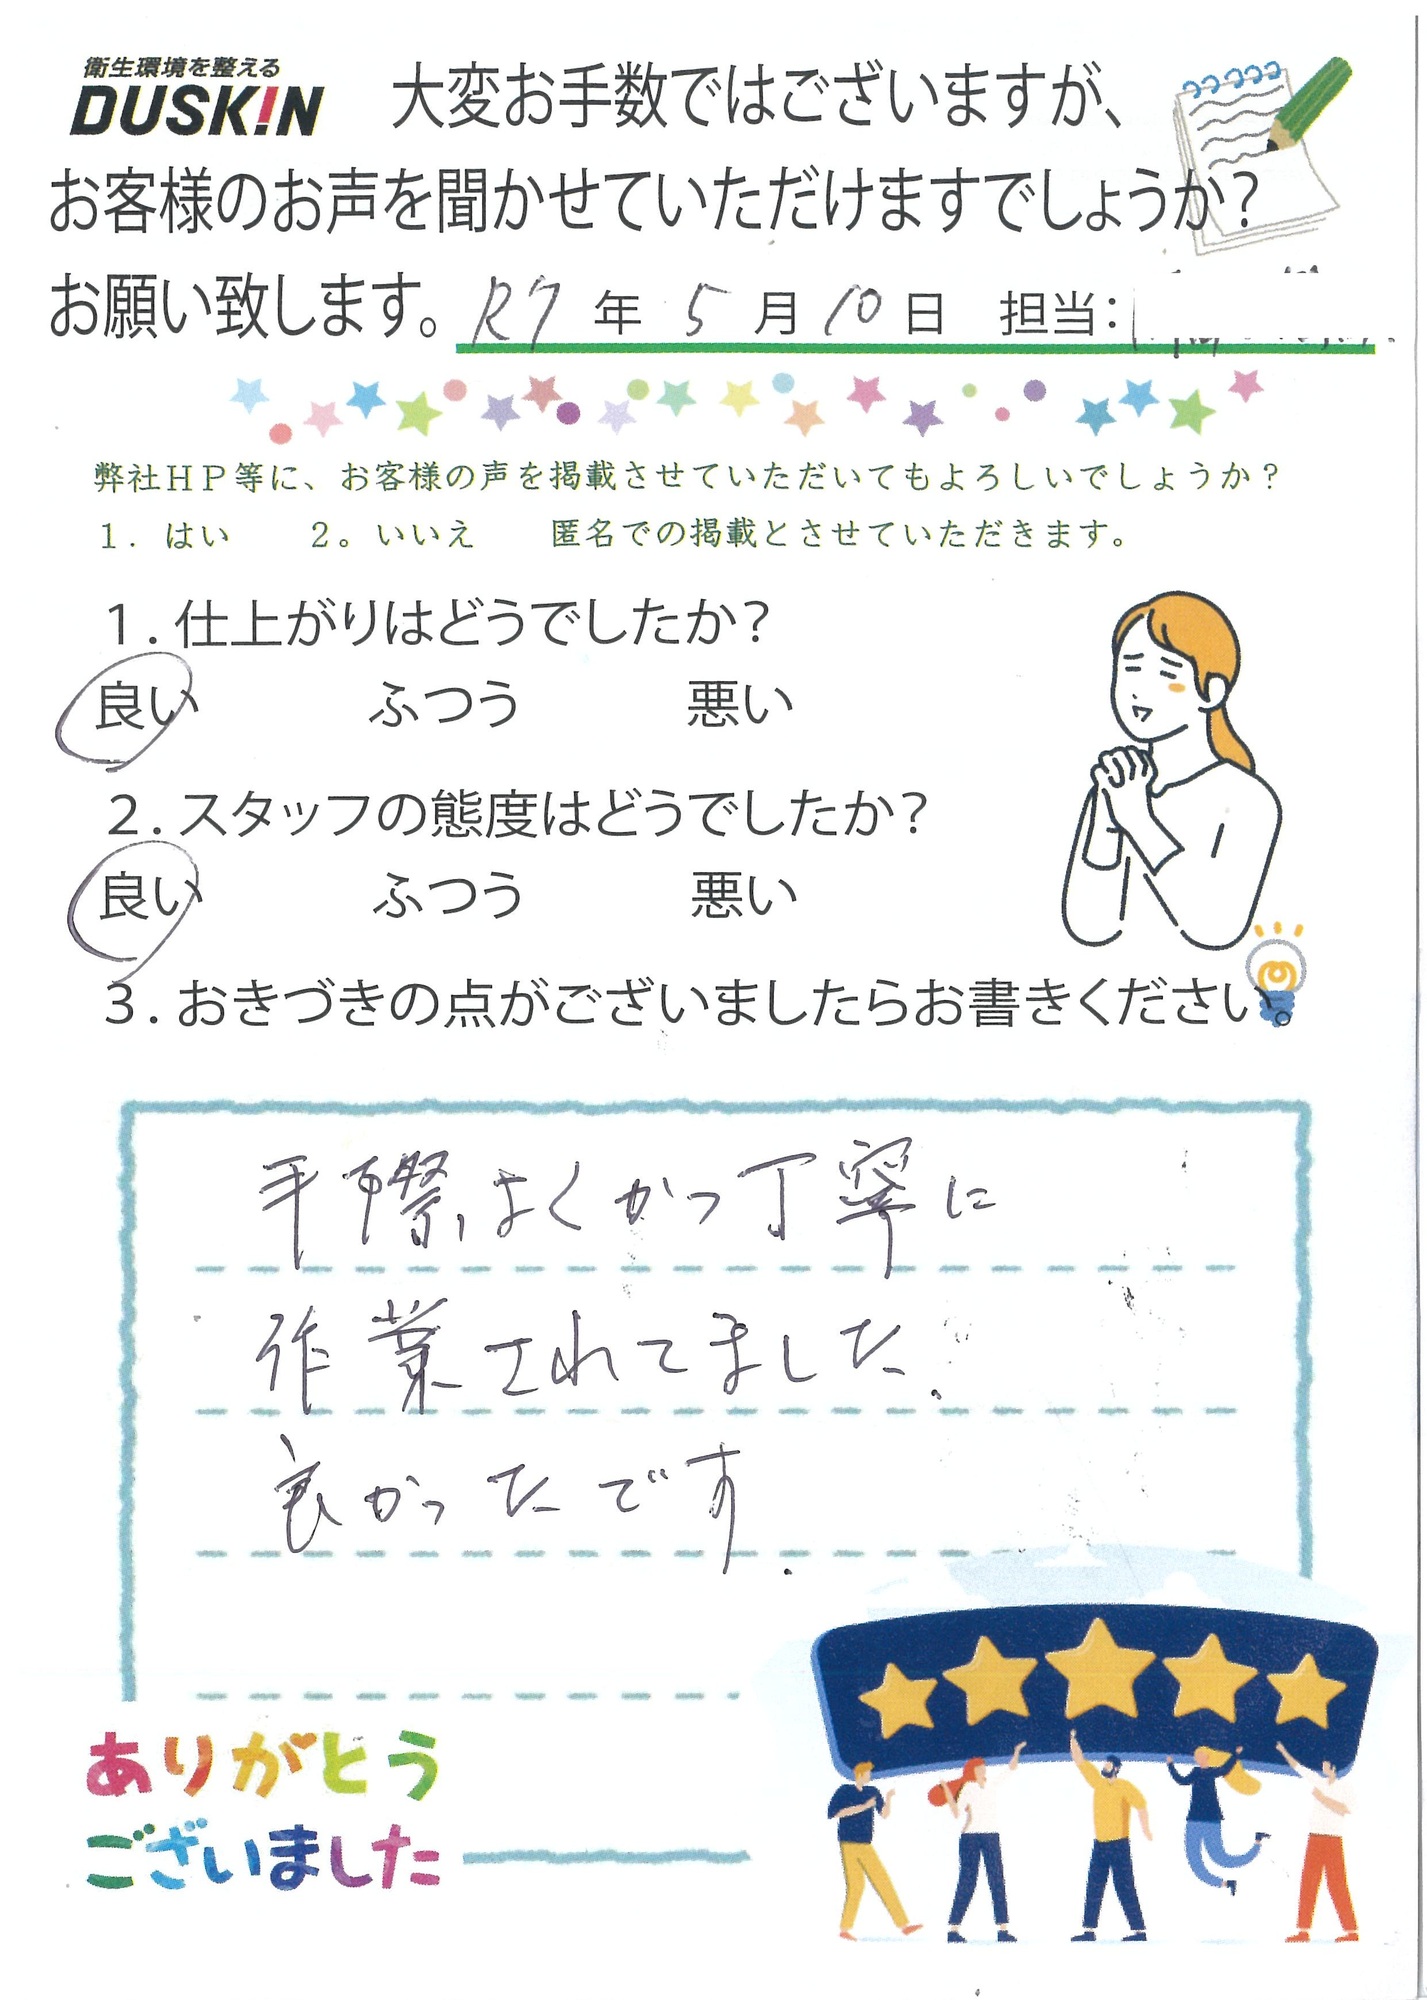 衛生環境を整える
DUSKIN
大変お手数ではございますが、
お客様のお声を聞かせていただけますでしょうか?
お願い致します。 R7 年 5 月 10 日 担当:
弊社HP等に、お客様の声を掲載させていただいてもよろしいでしょうか?
1. はい 2。いいえ 匿名での掲載とさせていただきます。
1. 仕上がりはどうでしたか?
良い ふつう 悪い
2. スタッフの態度はどうでしたか?
良い ふつう 悪い
3. おきづきの点がございましたらお書きください。
手際よくかつ丁寧に
作業されてました.
良かったです.
ありがとう
ございました